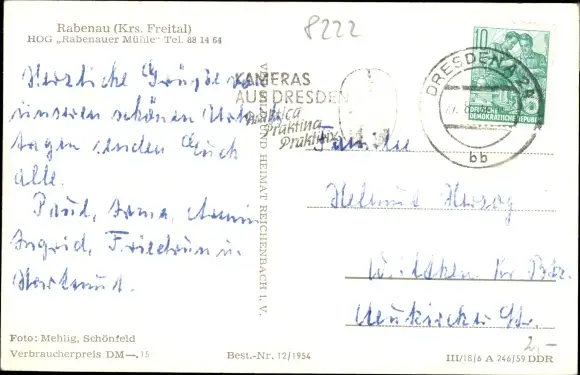 Rabenau (Krs. Freital)
HOG „Rabenauer Mühle" Tel. 88 14 64
8222
Herzliche Grüße von
unseren schönen Urlaubs
tagen senden Euch
alle.
Paul, Anna, Armin
Ingrid, Friedrun u.
Hartmut.
KAMERAS
AUS DRESDEN
Praktica
Praktina
Praktisix
10
DEUTSCHE
DEMOKRATISCHE REPUBLIK
DRESDEN A 24
bb
VERLAG BILD UND HEIMAT REICHENBACH I. V.
Familie
Helmut Herzog
Wilthen Kr. Btz.
Neukircher Str.
2,-
Foto: Mehlig, Schönfeld
Verbraucherpreis DM —.15
Best.-Nr. 12/1954
III/18/6 A 246/59 DDR